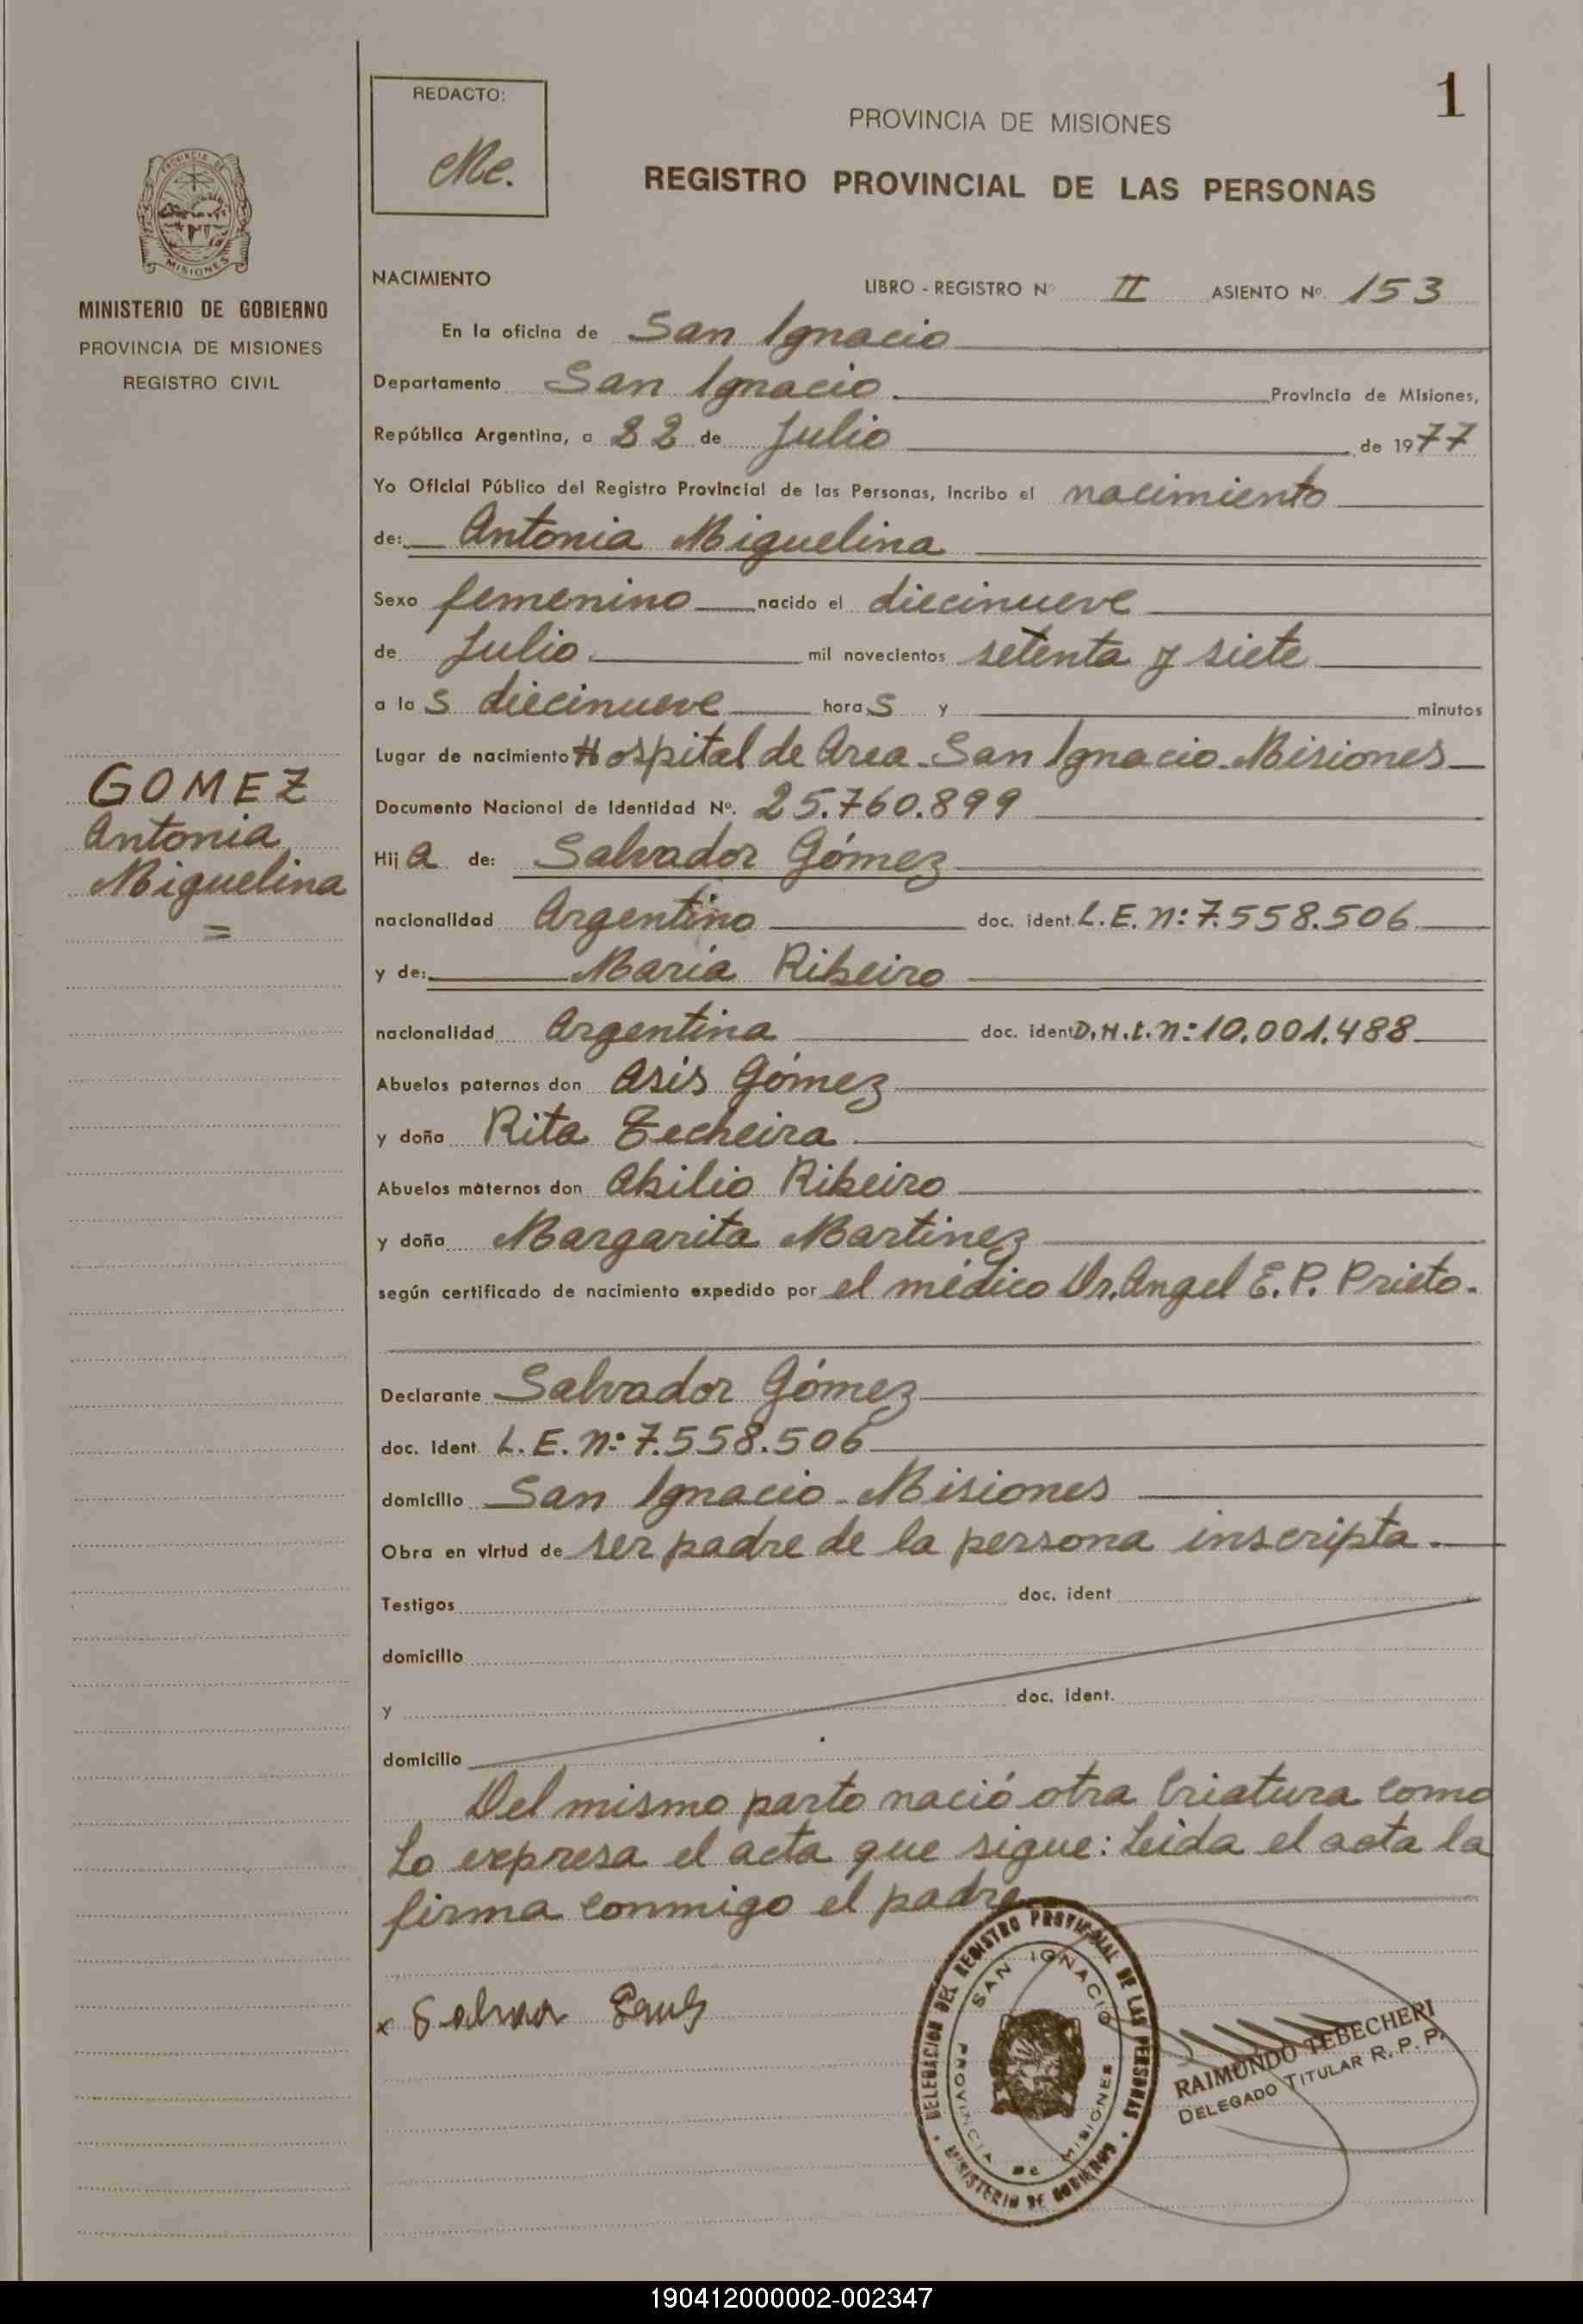 1
REDACTO:
PROVINCIA DE MISIONES
REGISTRO PROVINCIAL DE LAS PERSONAS
PROVINCIA DE
MISIONES
MINISTERIO DE GOBIERNO
PROVINCIA DE MISIONES
REGISTRO CIVIL
NACIMIENTO LIBRO - REGISTRO Nº II ASIENTO Nº. 153
En la oficina de San Ignacio
Departamento San Ignacio Provincia de Misiones,
República Argentina, a 22 de Julio de 1977
Yo Oficial Público del Registro Provincial de las Personas, Incribo el nacimiento
de: Antonia Miguelina
Sexo femenino nacido el diecinueve
de Julio mil novecientos setenta y siete
a las diecinueve horas y minutos
Lugar de nacimiento Hospital de Area - San Ignacio - Misiones
GOMEZ
Antonia
Miguelina
=
Documento Nacional de Identidad Nº. 25.760.899
Hija de: Salvador Gómez
nacionalidad Argentino doc. ident. L.E. nº 7.558.506
y de: Maria Ribeiro
nacionalidad Argentina doc. ident D.N.I. nº 10.001.488
Abuelos paternos don Asis Gómez
y doña Rita Techeira
Abuelos maternos don Abilio Ribeiro
y doña Margarita Martinez
según certificado de nacimiento expedido por el médico Dr. Angel E. P. Prieto.
Declarante Salvador Gómez
doc. Ident L.E. nº 7.558.506
domicilio San Ignacio - Misiones
Obra en virtud de ser padre de la persona inscripta.
Testigos doc. ident
domicilio
y doc. ident.
domicilio
Del mismo parto nació otra criatura como
lo expresa el acta que sigue: Leida el acta la
firma conmigo el padre
x
DELEGACION DEL REGISTRO PROVINCIAL DE LAS PERSONAS
MINISTERIO DE GOBIERNO
SAN IGNACIO
PROVINCIA DE MISIONES
RAIMUNDO TEBECHERI
DELEGADO TITULAR R. P. P.
190412000002-002347